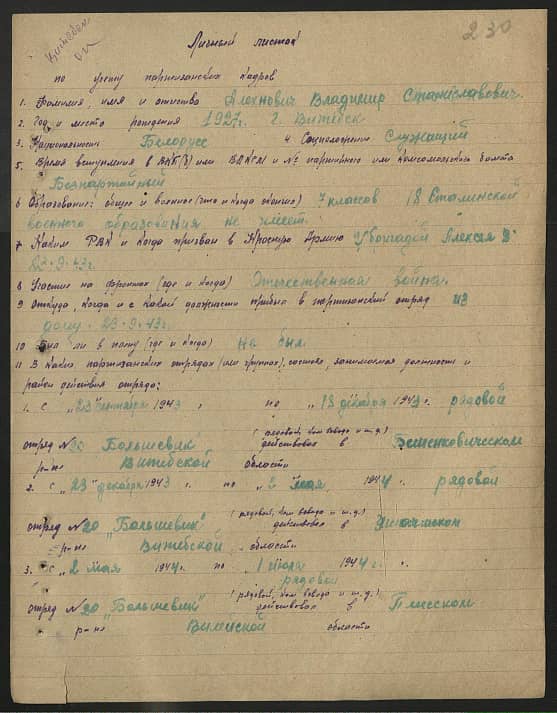 230
Личный листок
по учету партизанских кадров
1. Фамилия, имя и отчество Алехнович Владимир Станиславович.
2. Год и место рождения 1927г. г. Витебск
3. Национальность Белорусс 4. Соцположение Служащий
5. Время вступления в ВКП(б) или ВЛКСМ и № партийного или комсомольского билета
Безпартийный
6 Образование: общее и военное (что и когда окончил) 7 классов 18 Сталинской
военного образования не имеет.
7. Каким РВК и когда призван в Красную Армию бригадой Алексея
23.9.43г.
8. Участие на фронтах (где и когда) Отечественной война.
9 Откуда, когда и с какой должности прибыл в партизанский отряд из
дому. 23.9.43г.
10 Был ли в плену (где и когда) не был
11 В каких партизанских отрядах (или группах), состоял, занимаемая должность и
район действия отряда:
1. с „23" сентября 1943 г по „13 декабря 1943 г. рядовой
(рядовой, ком взвода и т.д.)
отряд № 20 „Большевик" действовал в Бешенковическом
р-не Витебской области
2. с „23" декабря 1943 г по „2 мая, 1944 г. рядовой
(рядовой, ком взвода и т.д.)
отряд № 20 „Большевик" действовал в Ушачском
р-не Витебской области
3. с „2 мая 1944 г. по „1 июля 1944 г.
рядовой
(рядовой, ком взвода и т.д.)
отряд № 20 „Большевик" действовал в Плисском
р-не Вилейской области